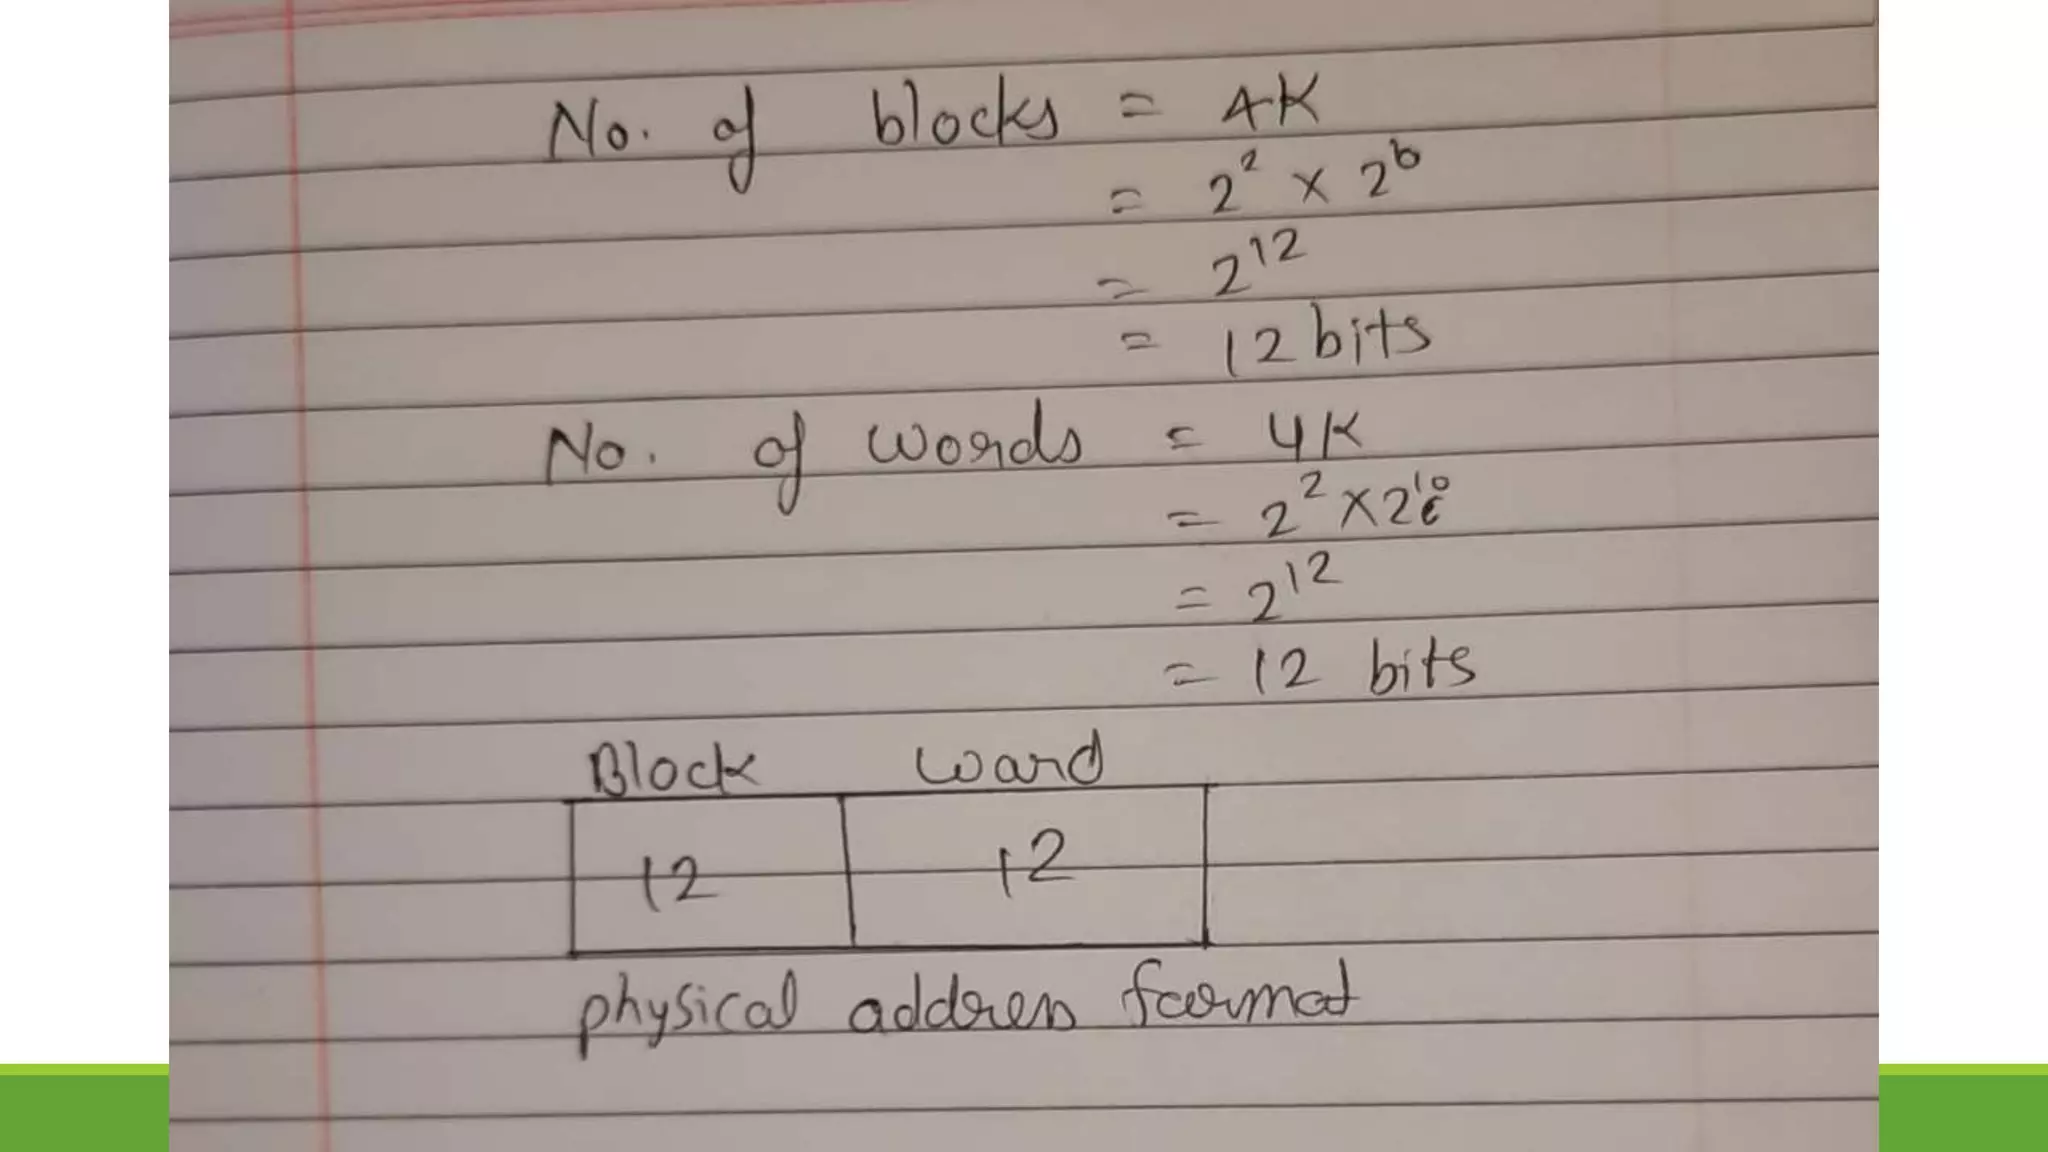 No. of blocks = 4K
= 2² × 2⁶
= 2¹²
= 12 bits
No. of words = 4K
= 2² × 2¹⁰
= 2¹²
= 12 bits
Block word
12 12
physical address format